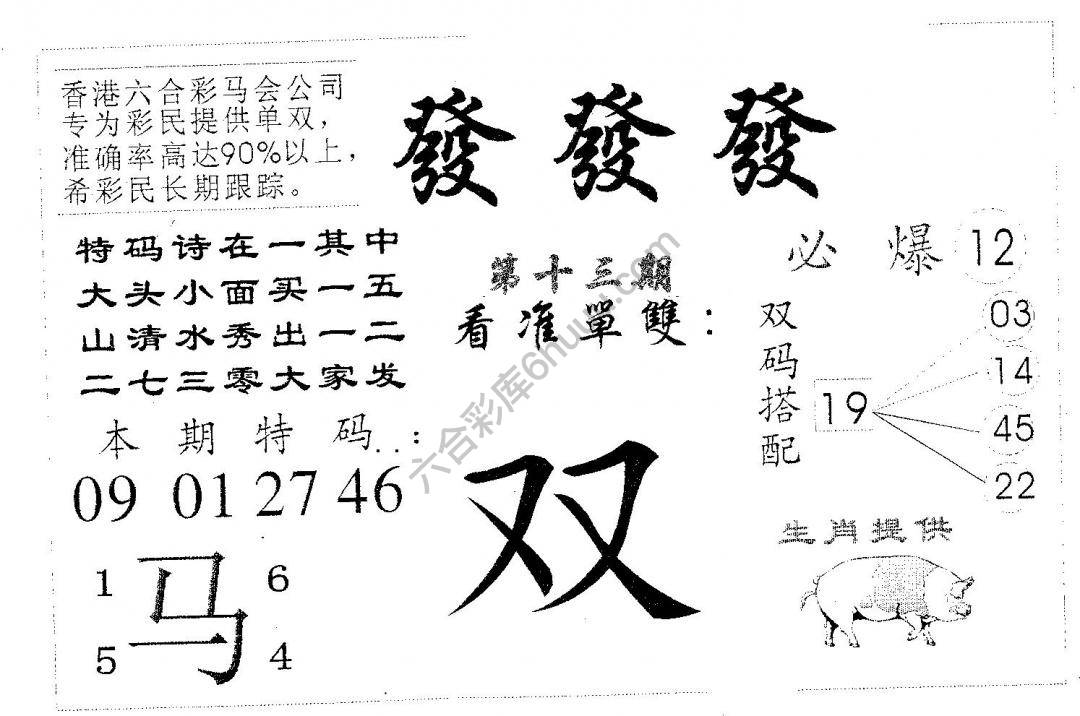 香港六合彩马会公司
专为彩民提供单双，
准确率高达90%以上，
希彩民长期跟踪。
發 發 發
特码诗在一其中
大头小面买一五
山清水秀出一二
二七三零大家发
第十三期
看准單雙：
必 爆 12
双码搭配
19
03
14
45
22
本期特码：
09 01 27 46
双
生肖提供
1 马 6
5 4
六合彩库6huu.com